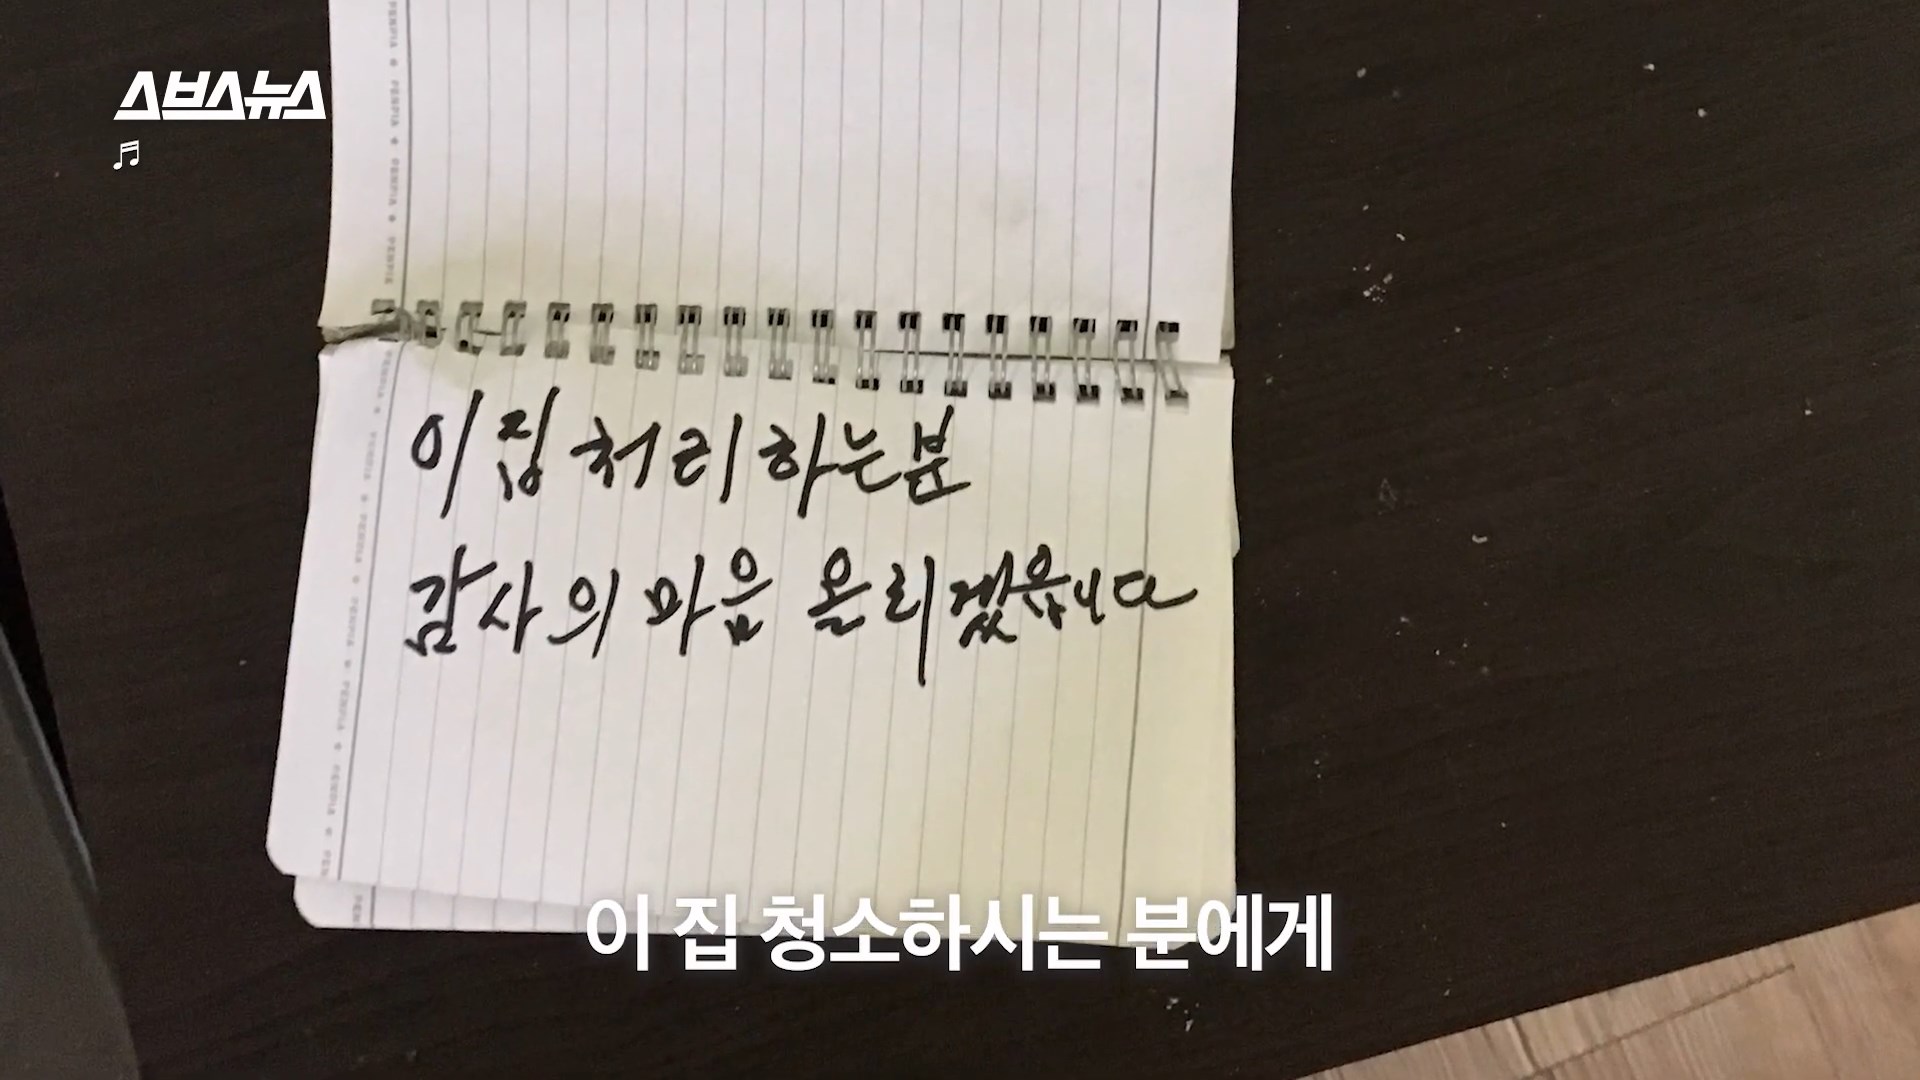 스브스뉴스
이 집 처리하는 분
감사의 마음 올리겠읍니다
이 집 청소하시는 분에게